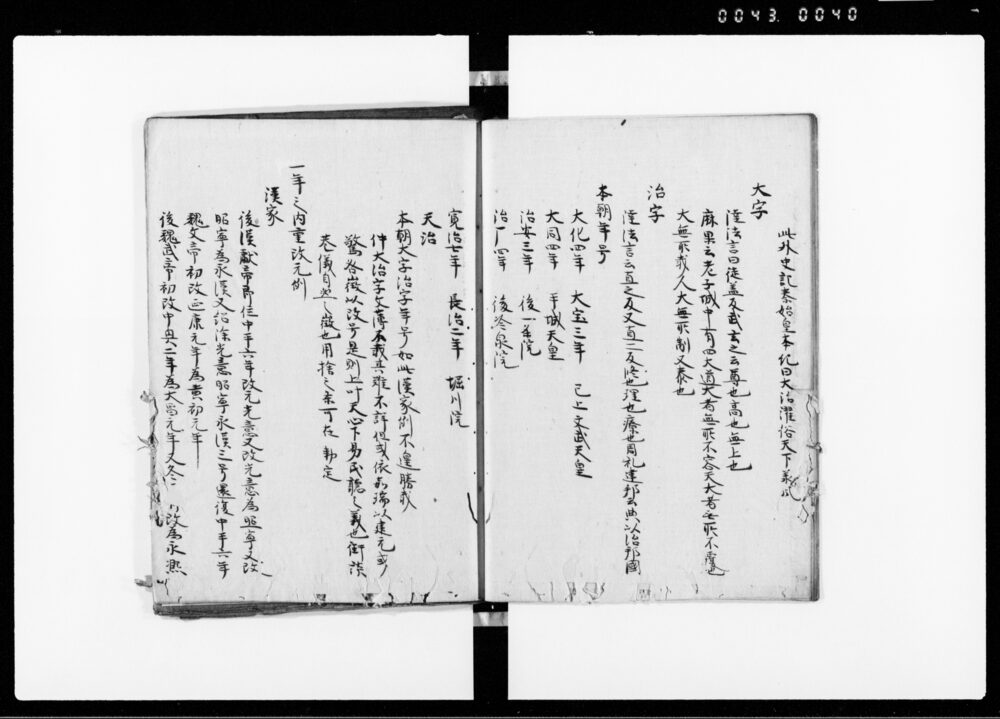 0043.0040
此外史記秦始皇本紀曰大治濯俗天下承風
大字
法言曰徒盖反武玄之云尊也高也無上也
麻果云老子域中有四大道大者無所不容天大者無所不覆也
大無所載人大無所制又泰也
治字
法言云直之反又直二反修也理也療也周礼建邦之典以治邦國
本朝年号
大化四年 大宝三年 已上文武天皇
大同四年 平城天皇
治安三年 後一条院
治暦四年 後冷泉院
寛治七年 長治二年 堀川院
天治
本朝大字治字年号如此漢家例不遑勝載
仲大治字文簿不載其難不詳但或依
瑞以建元或
驚咎徴以改号是則上叶天心下易民聴之義也街談
巷儀自然之徴也用捨之条可在勅定
一年之内重改元例
漢家
後漢献帝即位中平六年改元光憙又改光憙為昭寧又改
昭寧為永漢又詔除光憙昭寧永漢三号還復中平六年
魏文帝初改延康元年為黄初元年
後魏武帝初改中興二年為太昌元年又冬 改為永熙